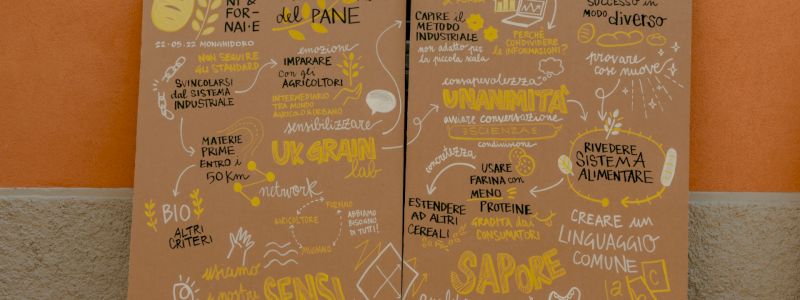 NI &
FOR-
NAI·E
del PANE
22·05·22 MONGHIDORO
NON SEGUIRE
GLI STANDARD
SVINCOLARSI
dal SISTEMA
INDUSTRIALE
emozione
IMPARARE
con gli
AGRICOLTORI
INTERMEDIARIO
TRA MONDO
AGRICOLO E URBANO
sensibilizzare
UK GRAIN
lab
MATERIE
PRIME
ENTRO i
50 KM
network
BIO
ALTRI
CRITERI
FORNAIO
AGRICOLTORE
MUGNAIO
ABBIAMO
BISOGNO
DI TUTTI!
usiamo
i nostri
SENSI
CAPIRE il
METODO
INDUSTRIALE
non adatto per
la piccola scala
PERCHÉ
CONDIVIDERE
LE INFORMAZIONI?
SUCCESSO IN
MODO diverso
provare
cose nuove
consapevolezza
UNANIMITÀ
avviare conversazione
SCIENZA
condivisione
concretizza
USARE
FARINA con
MENO
PROTEINE
GRADITA dai
CONSUMATORI
ESTENDERE
AD ALTRI
CEREALI
RIVEDERE
SISTEMA
ALIMENTARE
CREARE un
LINGUAGGIO
COMUNE
SAPORE
a
b
C